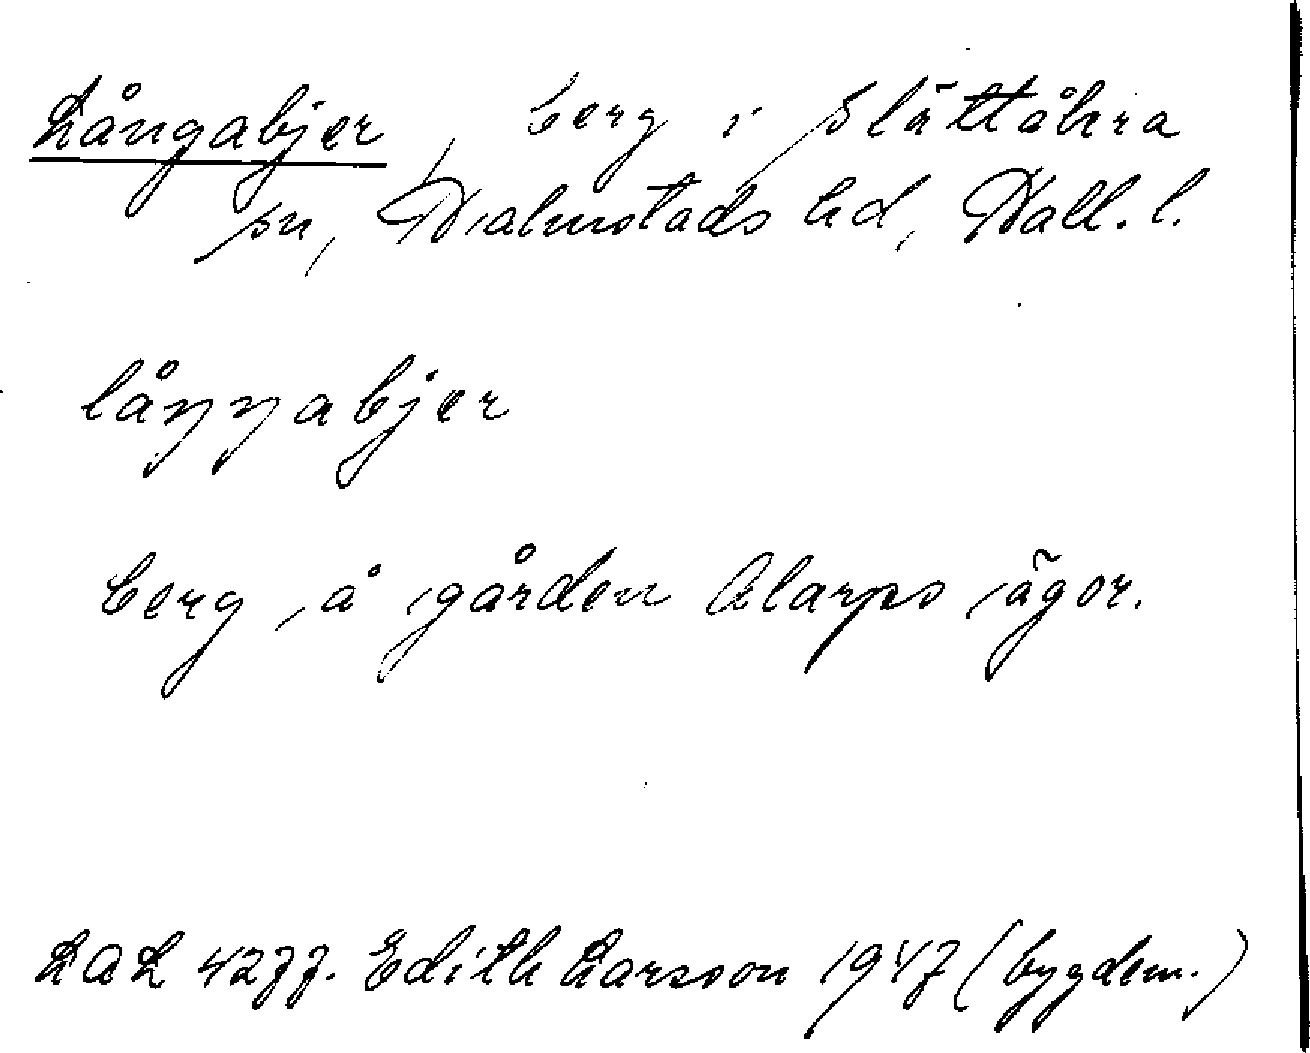 Långabjer, berg i Slättåkra
sn, Halmstads hd, Hall. l.
låŋŋabjer
berg å gården Alarps ägor.
LAL 4277. Edith Larsson 1947 (bygdem.)